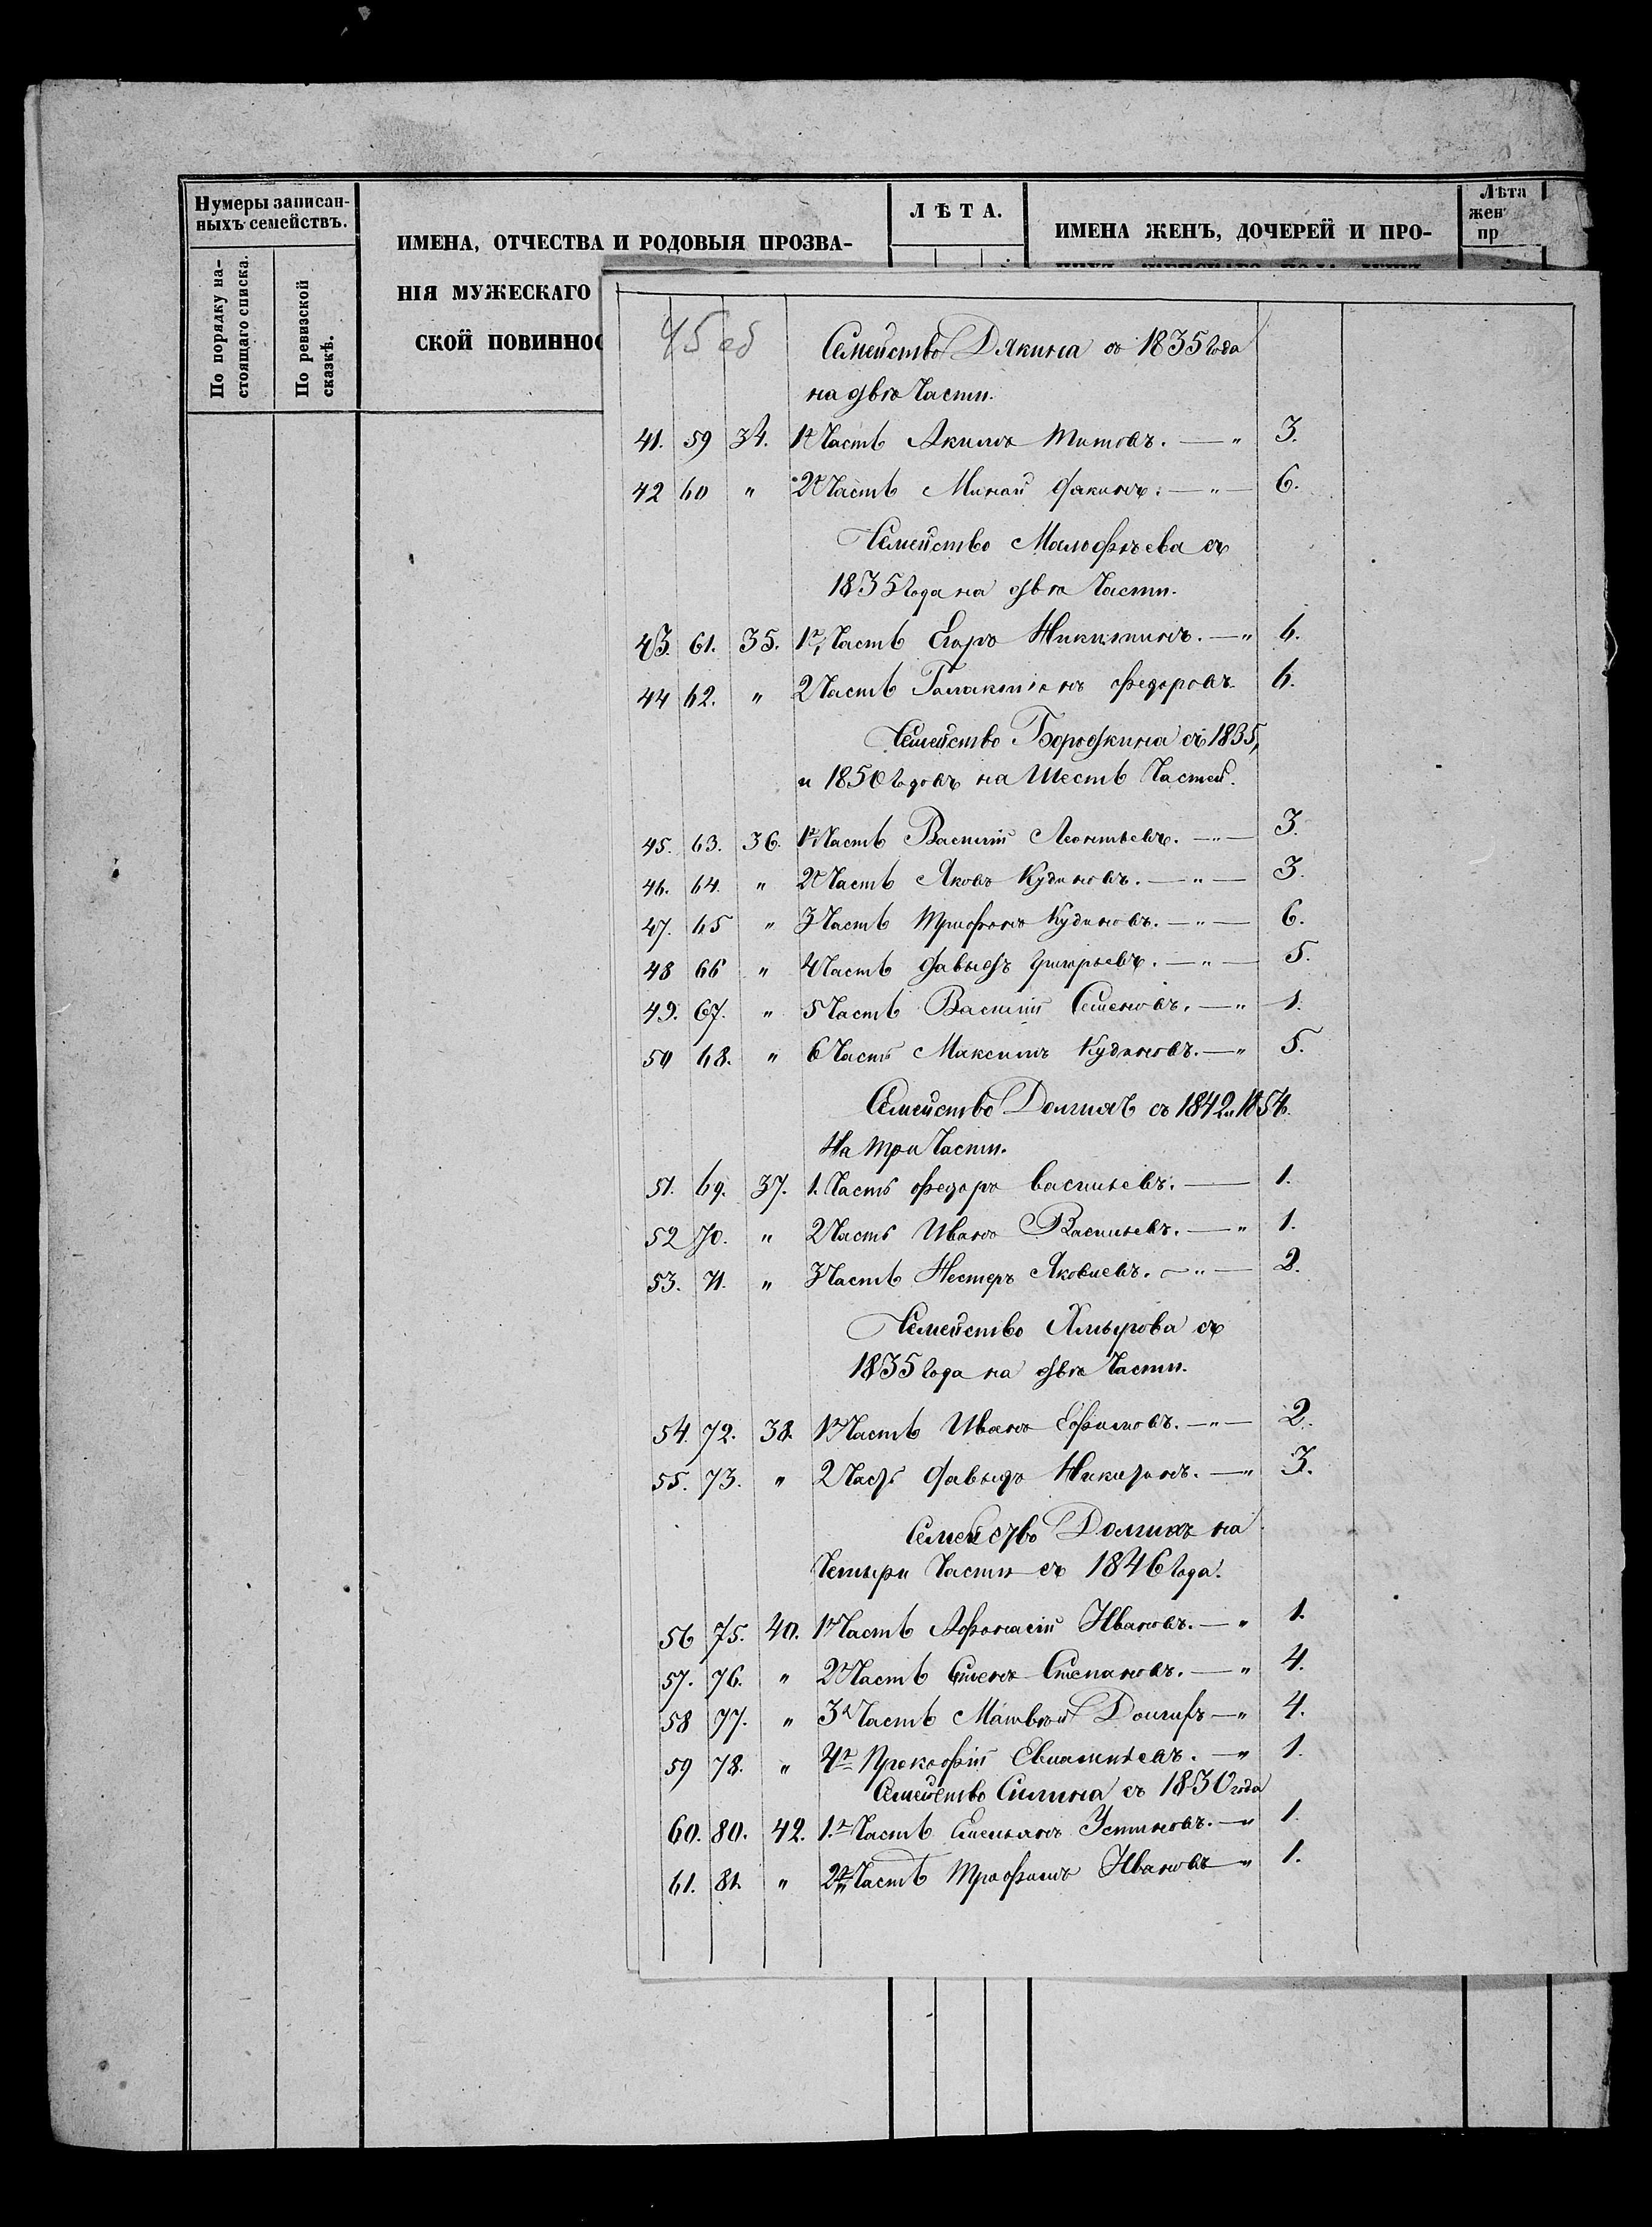 Нумеры записан-
ныхъ семействъ.
По порядку на-
стоящаго списка.
По ревизской
сказкѣ.
ИМЕНА, ОТЧЕСТВА И РОДОВЫЯ ПРОЗВА-
НІЯ МУЖЕСКАГО
СКОЙ ПОВИННОС
ЛѢТА.
ИМЕНА ЖЕНЪ, ДОЧЕРЕЙ И ПРО-
Лѣта
жен
пр
45 об
Семейство Дякина съ 1835 года
на двѣ Части.
41. 59 34. 1я Часть Акимъ Титовъ. — " 3.
42 60 " 2я Часть Минай — " — 6.
Семейство Малофѣева съ
1835 года на двѣ Части.
43. 61. 35. 1я Часть Егоръ Никитинъ. — " 6.
44 62. " 2 Часть Галактіонъ Федоровъ. 6.
Семейство Бородкина съ 1835,
и 1850 годовъ на Шесть Частей.
45. 63. 36. 1я Часть Василій Леонтьевъ. — " — 3.
46. 64. " 2я Часть Яковъ Кудиновъ. — " — 3.
47. 65 " 3 Часть Трифонъ Кудиновъ. — " — 6.
48 66 " 4 Часть Давыдъ — " — 5.
49. 67. " 5 Часть Василій Семеновъ. — " 1.
50 68. " 6 Часть Максимъ Кудиновъ. — " 5.
Семейство Долгихъ съ 1842 и 1854.
На три Части.
51. 69. 37. 1. Часть Федоръ Васильевъ. — 1.
52 70. " 2 Часть Иванъ Васильевъ. — " 1.
53. 71. " 3 Часть Нестеръ Яковлевъ. — " — 2.
Семейство Хмырова съ
1835 года на двѣ Части.
54. 72. 38. 1я Часть Иванъ Ефимовъ. — " — 2.
55. 73. " 2 Часть Давыдъ — " 3.
Семейство Долгихъ на
Четыри Части съ 1846 года.
56 75. 40. 1я Часть Афонасій Ивановъ. — " 1.
57. 76. " 2я Часть Степановъ. — " 4.
58 77. " 3я Часть Матвѣй Долгихъ — " 4.
59 78. " 4я Прокофій — " 1.
Семейство Силина съ 1830 года
60. 80. 42. 1.я Часть Емельянъ Устиновъ. — " 1.
61. 81. " 2я Часть Трофимъ Ивановъ — " 1.